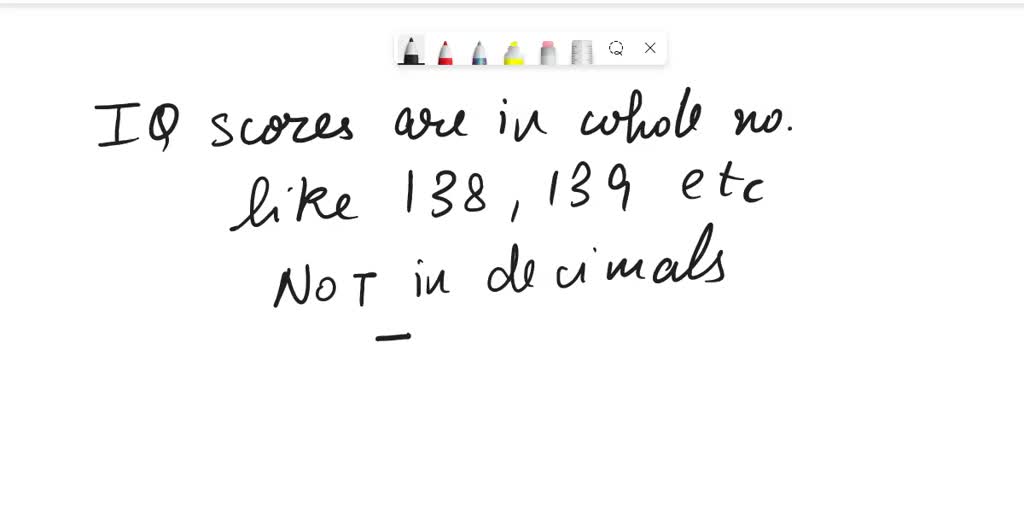 IQ scores are in whole no.
like 138, 139 etc
NOT in decimals